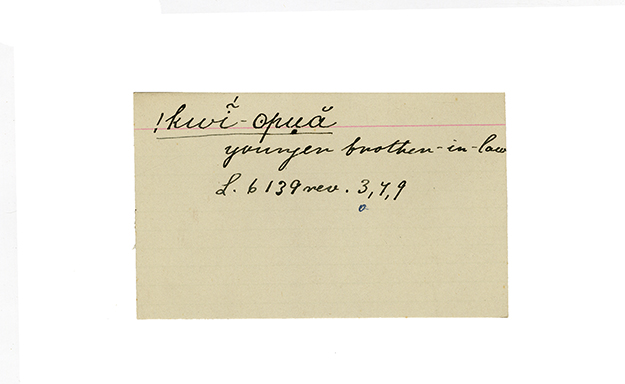 !kwĩ-ʘpuặ
younger brother-in-law
L. 6 139 rev. 3, 7, 9